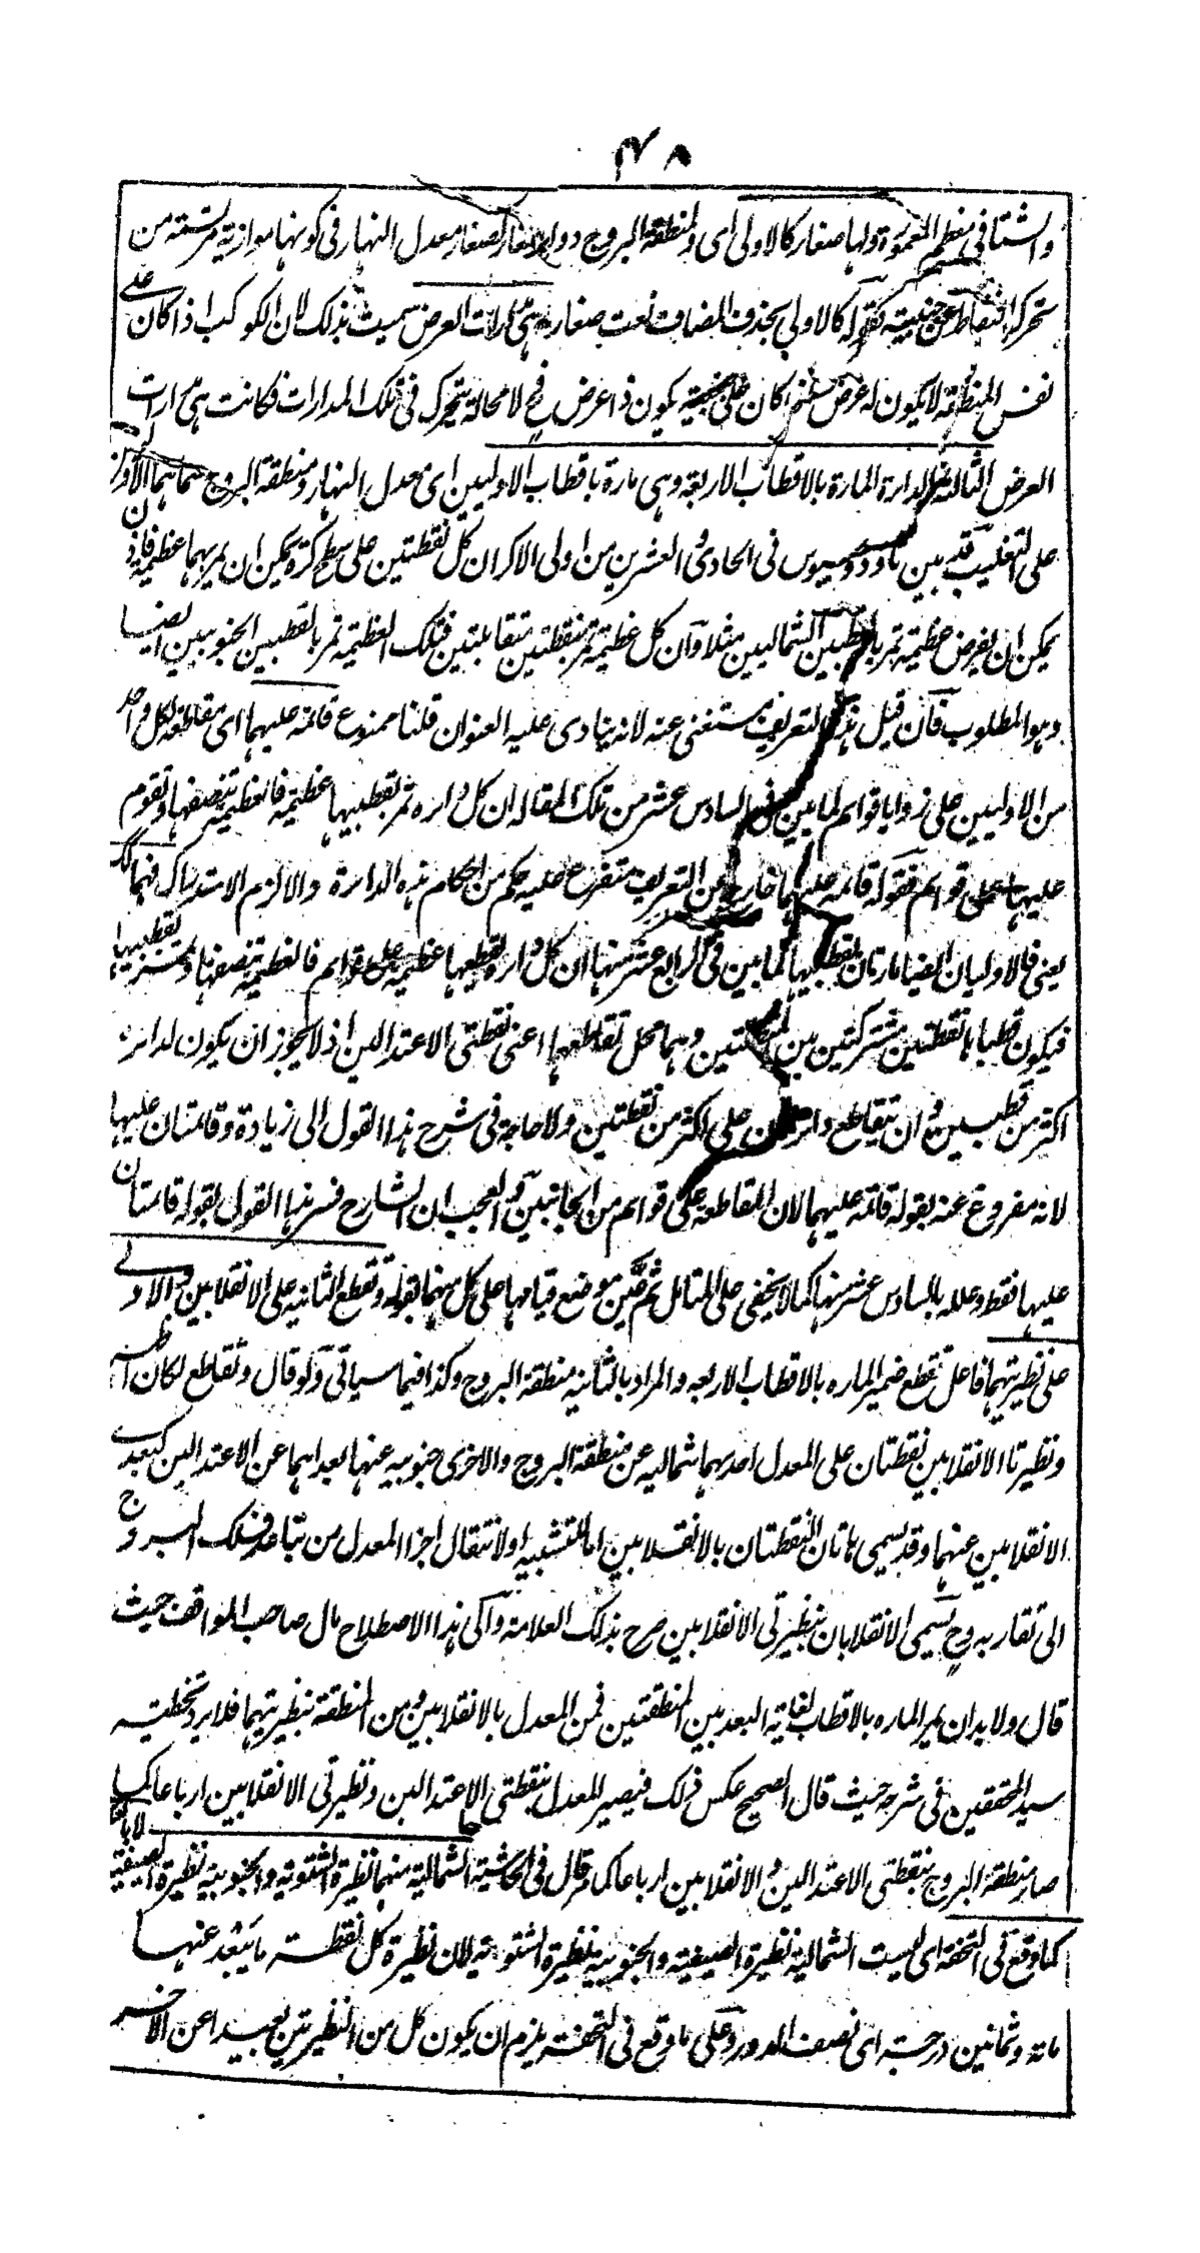 ٤٨
والشتا فى معظم المعمورة ولها صغار كالاولى اى ولمنطقة البروج دوائر صغار كصغار معدل النهار فى كونها موازية مرتسمة من
تحرك النقاط عن جنبيه فقوله كالاولى بحذف المضاف نعت صغار هى مدارات العرض سميت بذلك لان الكوكب اذا كان على
نفس المنطقة لا يكون له عرض كان على جنبيه يكون ذا عرض فح لا محالة يتحرك فى تلك المدارات فكانت هى مدارات
العرض الثالثة الدائرة المارة بالاقطاب الاربعة وهى مارة باقطاب الاوليين اى معدل النهار ومنطقة البروج سماهما الاوليين
على التغليب قد بين ثاودوسيوس فى الحادى والعشرين من اولى الاكر ان كل نقطتين على سطح كرة يمكن ان يمر بهما عظيمة فاذن
يمكن ان يفرض عظيمة تمر بالقطبين الشماليين مثلا وان كل عظيمة تمر بنقطتين متقابلتين فتلك العظيمة تمر بالقطبين الجنوبيين ايضا
وهو المطلوب فان قيل هذا التعريف مستغنى عنه لانه ينادى عليه العنوان قلنا ممنوع قائمة عليهما اى مقاطعة لكل واحد
من الاوليين على زوايا قوائم لما بين فى السادس عشر من تلك المقالة ان كل دائرة تمر بقطبيها عظيمة فالعظيمة تنصفها وتقوم
عليها على قوائم فقوله قائمة عليهما خارج عن التعريف متفرع عليه حكم من احكام هذه الدائرة والا لزم الاستدراك فهنالك
يعنى فالاوليان ايضا مارتان بقطبيها لما بين فى الرابع عشر منها ان كل دائرة يقطعها عظيمة على قوائم فالعظيمة تنصفها وتمر بقطبيها
فيكون قطباها نقطتين مشتركتين بين المنطقتين وهما محل تقاطعهما اعنى نقطتى الاعتدالين اذ لا يجوز ان يكون لدائرة
اكثر من قطبين و ان يتقاطع دائرتان على اكثر من نقطتين ولا حاجة فى شرح هذا القول الى زيادة وقائمتان عليها
لانه مفروغ عنه بقوله قائمة عليهما لان المقاطعة على قوائم من الجانبين و العجب ان الشارح فسر هذا القول بقوله قائمتان
عليها فقط وعلله بالسادس عشر منها كما لا يخفى على المتامل ثم بين موضع قيامها على كل منهما بقوله وتقطع الثانية على الانقلابين و الاولى
على نظيرتهما فاعل تقطع ضمير المارة بالاقطاب الاربعة والمراد بالثانية منطقة البروج وكذا فيما سياتى ولو قال وتقاطع لكان اظهر
ونظيرتا الانقلابين نقطتان على المعدل احدهما شمالية عن منطقة البروج والاخرى جنوبية عنها بعداهما عن الاعتدالين كبعدى
الانقلابين عنهما وقد يسمى هاتان النقطتان بالانقلابين اما للتشبيه او لانتقال اجزا المعدل من تباعد فلك البروج
الى تقاربه وح يسمى الانقلابان بنظيرتى الانقلابين صرح بذلك العلامة و الى هذا الاصطلاح مال صاحب المواقف حيث
قال ولا بد ان يمر المارة بالاقطاب لغاية البعد بين المنطقتين فمن المعدل بالانقلابين و من المنطقة بنظيرتهما فلا يرد تخطئة
سيد المحققين فى شرحه حيث قال الصحيح عكس ذلك فيصير المعدل بنقطتى الاعتدالين ونظيرتى الانقلابين ارباعا كما
صار منطقة البروج بنقطتى الاعتدالين و الانقلابين ارباعا كما مر قال فى الحاشية الشمالية منهما نظيرة الشتوية والجنوبية نظيرة الصيفية لا بالعكس
كما وقع فى التحفة اى ليست الشمالية نظيرة الصيفية والجنوبية نظيرة الشتوية لان نظيرة كل نقطة ما يبعد عنها
مائة وثمانين درجة اى نصف الدور وعلى ما وقع فى التحفة يلزم ان يكون كل من النظيرتين بعيدا عن الاخر